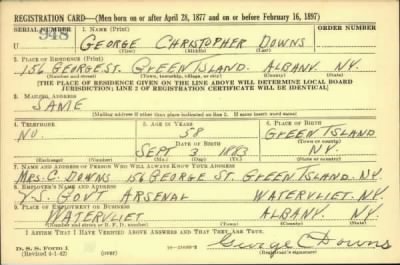 REGISTRATION CARD—(Men born on or after April 28, 1877 and on or before February 16, 1897)
SERIAL NUMBER 1. NAME (Print) ORDER NUMBER
948 GEORGE CHRISTOPHER DOWNS
(First) (Middle) (Last)
2. PLACE OF RESIDENCE (Print)
156 GEORGE ST. GREEN ISLAND. ALBANY N.Y.
(Number and street) (Town, township, village, or city) (County) (State)
[THE PLACE OF RESIDENCE GIVEN ON THE LINE ABOVE WILL DETERMINE LOCAL BOARD
JURISDICTION; LINE 2 OF REGISTRATION CERTIFICATE WILL BE IDENTICAL]
3. MAILING ADDRESS
SAME
[Mailing address if other than place indicated on line 2. If same insert word same]
4. TELEPHONE 5. AGE IN YEARS 6. PLACE OF BIRTH
NO. 58 GREEN ISLAND
DATE OF BIRTH (Town or county)
SEPT 3 1883 N.Y.
(Mo.) (Day) (Yr.) (State or country)
7. NAME AND ADDRESS OF PERSON WHO WILL ALWAYS KNOW YOUR ADDRESS
MRS. C. DOWNS 156 GEORGE ST. GREEN ISLAND. N.Y.
8. EMPLOYER'S NAME AND ADDRESS
U.S. GOVT ARSENAL WATERVLIET. N.Y.
9. PLACE OF EMPLOYMENT OR BUSINESS
WATERVLIET ALBANY. N.Y.
(Number and street or R. F. D. number) (Town) (County) (State)
I AFFIRM THAT I HAVE VERIFIED ABOVE ANSWERS AND THAT THEY ARE TRUE.
D. S. S. Form 1
(Revised 4-1-42) (over)
George C Downs
(Registrant's signature)